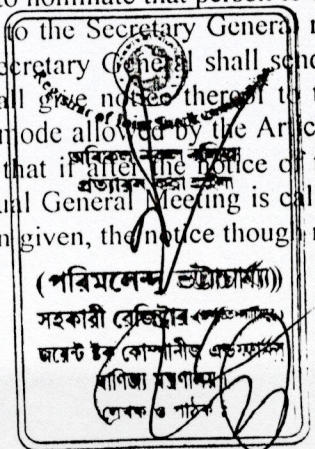 to nominate that person to
to the Secretary General
Secretary General shall send
shall give notice thereof to t
mode allowed by the Artic
that if after the notice of t
ual General Meeting is cal
n given, the notice though
Registrar of Joint Stock
অবিকল নকল বলিয়া
প্রত্যায়ন করা হইল
(পরিমলেন্দু ভট্টাচার্য্য)
সহকারী রেজিষ্ট্রার
জয়েন্ট ষ্টক কোম্পানীজ এন্ড ফার্মস
বাণিজ্য মন্ত্রণালয়
লেখক ও পাঠক :